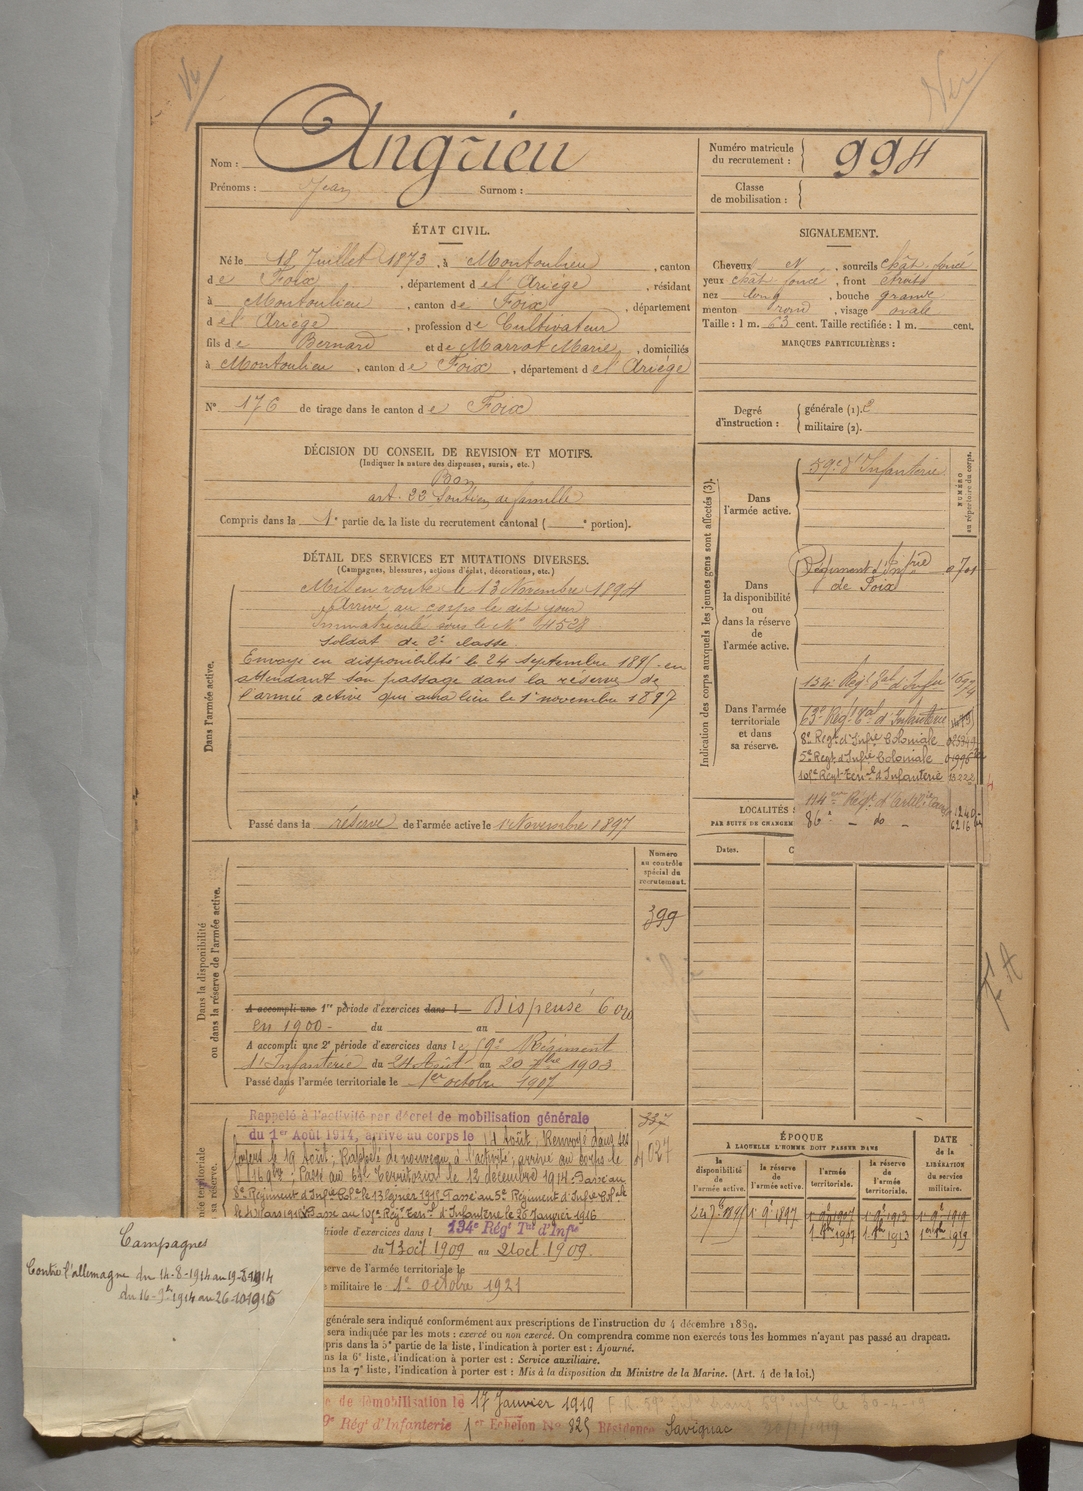 Nom : Angrieu
Prénoms : Jean Surnom :
Numéro matricule du recrutement : 994
Classe de mobilisation :
ÉTAT CIVIL.
Né le 18 Juillet 1873, à Montoulieu, canton
de Foix, département de l'Ariège, résidant
à Montoulieu, canton de Foix, département
de l'Ariège, profession de Cultivateur
fils de Bernard et de Marrot Marie, domiciliés
à Montoulieu, canton de Foix, département de l'Ariège
N° 176 de tirage dans le canton de Foix
SIGNALEMENT.
Cheveux N, sourcils chât. foncé
yeux chât foncé, front étroit
nez long, bouche grande
menton rond, visage ovale
Taille : 1 m. 63 cent. Taille rectifiée : 1 m. cent.
MARQUES PARTICULIÈRES :
Degré d'instruction : générale (1). 2
militaire (2).
DÉCISION DU CONSEIL DE REVISION ET MOTIFS.
(Indiquer la nature des dispenses, sursis, etc.)
Bon
art. 22 Soutien de famille
Compris dans la 1e partie de la liste du recrutement cantonal ( e portion).
DÉTAIL DES SERVICES ET MUTATIONS DIVERSES.
(Campagnes, blessures, actions d'éclat, décorations, etc.)
Dans l'armée active.
Mis en route le 13 Novembre 1894
Arrivé au corps le dit jour
Immatriculé sous le N° 4528
Soldat de 2e classe
Envoyé en disponibilité le 24 septembre 1895 en
attendant son passage dans la réserve de
l'armée active qui aura lieu le 1er novembre 1897
Passé dans la réserve de l'armée active le 1er Novembre 1897
Indication des corps auxquels les jeunes gens sont affectés (3).
NUMÉRO au répertoire du corps.
Dans l'armée active.
59e d'Infanterie
Dans la disponibilité ou dans la réserve de l'armée active.
Régiment d'Infrie
de Foix
Dans l'armée territoriale et dans sa réserve.
134e Régt Tal d'Infie
63e Regt Tal d'Infanterie
8e Régt d'Infie Coloniale
5e Régt d'Infie Coloniale
101e Régt Terrial d'Infanterie 13222
114me Régt d'Artillerie
86e — do —
LOCALITÉS
PAR SUITE DE CHANGEM
Dates.
Dans la disponibilité ou dans la réserve de l'armée active.
Numéro au contrôle spécial du recrutement.
399
A accompli une 1re période d'exercices dans l Dispensé
en 1900 - du au
A accompli une 2e période d'exercices dans le 59e Régiment
d'Infanterie du 24 Août au 20 7bre 1903
Passé dans l'armée territoriale le 1er octobre 1907
Rappelé à l'activité par décret de mobilisation générale
du 1er Août 1914, arrivé au corps le 14 Août, Renvoyé dans ses
foyers le 19 Août, Rappelé de nouveau à l'activité, arrivé au corps le
16 9bre ; Passé au 63e Territorial le 12 décembre 1914. Passé au
8e Régiment d'Infie Cole le 13 février 1915 Passé au 5e Régiment d'Infie Cole
Passé au 101e Régt Terral d'Infanterie le 26 Janvier 1916
ériode d'exercices dans l 134e Régt Tal d'Infie
du 13 oct 1909 au 21 oct. 1909.
serve de l'armée territoriale le
militaire le 1er octobre 1921
ÉPOQUE
À LAQUELLE L'HOMME DOIT PASSER DANS
DATE DE LA LIBÉRATION du service militaire.
la disponibilité de l'armée active.
la réserve de l'armée active.
l'armée territoriale.
la réserve de l'armée territoriale.
24 7bre 1895 1er 9bre 1897 1er 9bre 1907 1er 9bre 1913 1er 9bre 1919
Campagnes
Contre l'allemagne du 14-8-1914 au 19-8-1914
du 16-9bre 1914 au 26-10-1915
générale sera indiqué conformément aux prescriptions de l'instruction du 4 décembre 1889.
sera indiquée par les mots : exercé ou non exercé. On comprendra comme non exercés tous les hommes n'ayant pas passé au drapeau.
pris dans la 5e partie de la liste, l'indication à porter est : Ajourné.
ans la 6e liste, l'indication à porter est : Service auxiliaire.
ans la 7e liste, l'indication à porter est : Mis à la disposition du Ministre de la Marine. (Art. 4 de la loi.)
e de démobilisation le 17 Janvier 1919
9e Régt d'Infanterie 1er Echelon No 825 Résidence Savignac